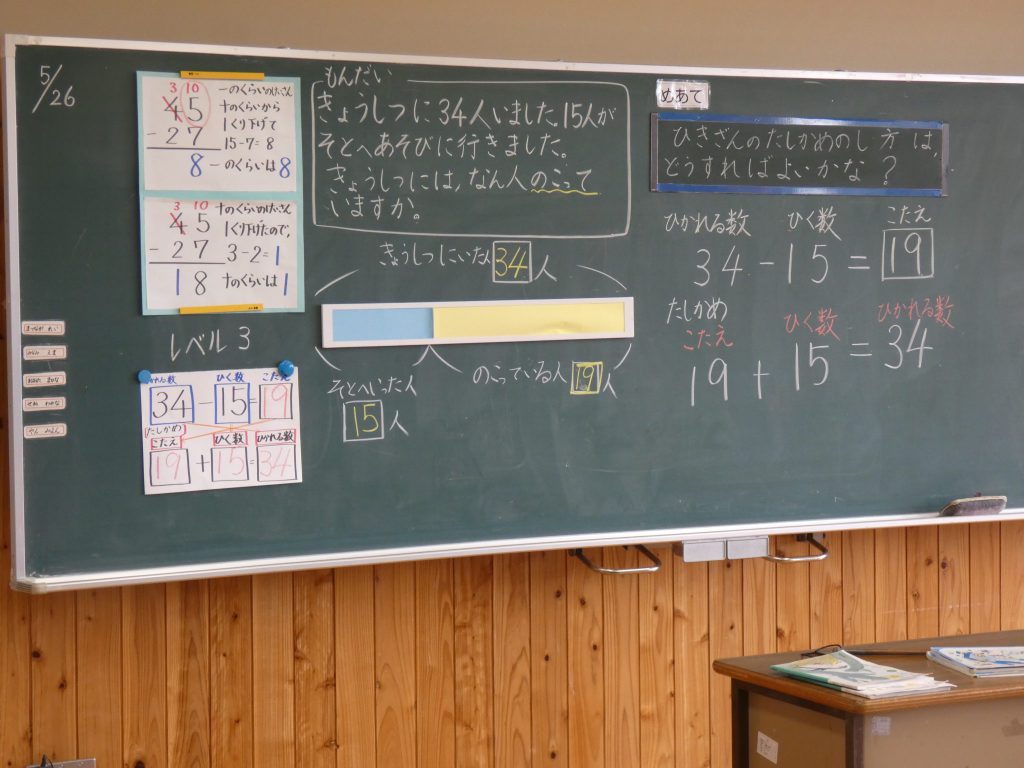 5/26
3 10
45
-27
8
一のくらいのけいさん
十のくらいから
1くり下げて
15-7=8
一のくらいは8
3 10
45
-27
18
十のくらいのけいさん
1くり下げたので、
3-2=1
十のくらいは1
レベル3
ひく数 こたえ
34-15=19
たしかめ
こたえ ひく数 ひかれる数
19+15=34
もんだい
きょうしつに34人いました。15人が
そとへあそびに行きました。
きょうしつには、なん人のこって
いますか。
きょうしつにいた人34人
そとへいった人
15人
のこっている人19人
めあて
ひきざんのたしかめのし方は、
どうすればよいかな?
ひかれる数 ひく数 こたえ
34-15=19
たしかめ
こたえ ひく数 ひかれる数
19+15=34